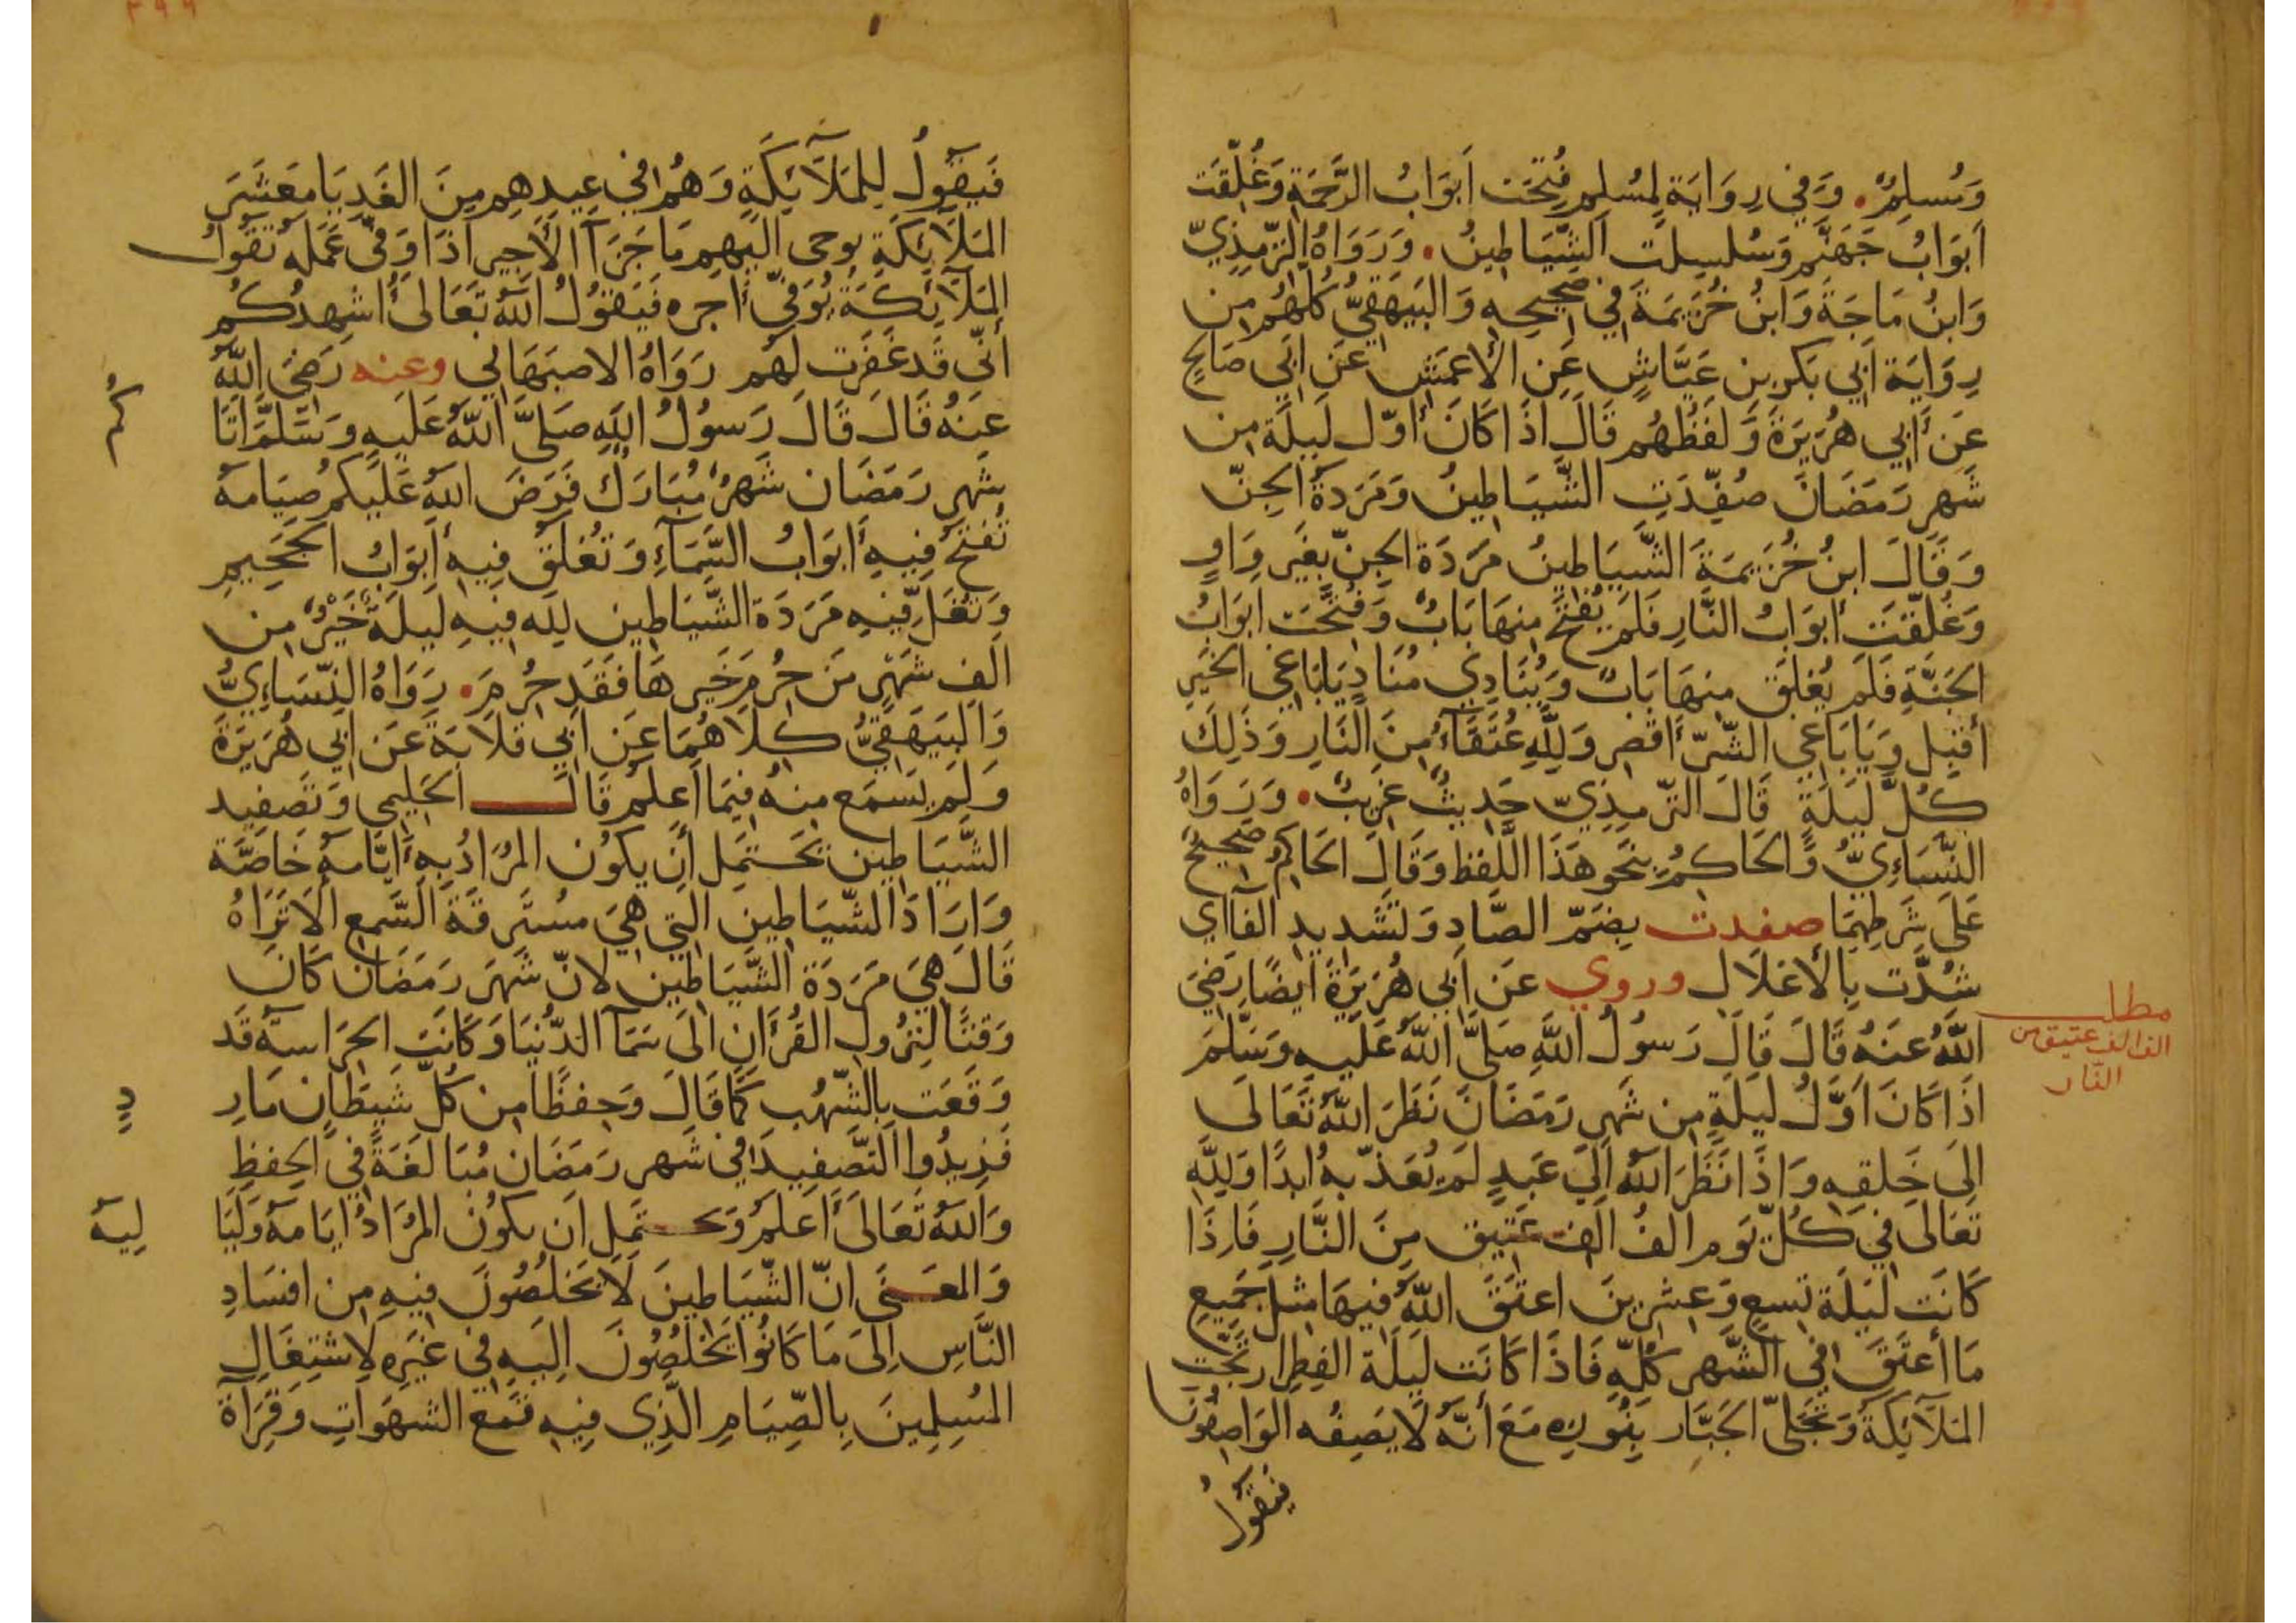 وَمُسلِمٌ. وَفي رِوَايَة لِمُسلِمِ فُتِحَت اَبوَابُ الرَّحمَةِ وَغُلِّقَت
اَبوَابُ جَهَنَّمِ وَسُلسِلَت الشَّيَاطِينُ. وَرَوَاهُ التِّرمِذِيّ
وَابنُ مَاجَةَ وَابنُ خُزَيمَةَ في صَحِيحِهِ وَالبَيهَقِيُّ كلّهُم مِن
رِوَايَة اَبي بَكرِ بنِ عَيَّاشٍ عَنِ الأَعمَشِ عَن اَبي صَالِحٍ
عَن أَبي هُرَيَرَةَ وَلَفظُهُم قَالَ اذَا كَانَ أوّل لَيلَة مِن
شَهرِ رَمَضَانَ صُفِّدَتِ الشَّيَاطِينُ وَمَرَدةُ الجِنّ
وَقَالَ ابنُ خُزَيمَةَ الشَّيَاطِينُ مَرَدَة الجِنّ بغَيرِ وَاوٍ
وَغُلِّقَتَ أبوَابُ النَّارِ فَلَم يُفتَح مِنهَا بَابٌ وَفُتِّحَت ابوَابُ
الجَنَّةِ فَلَم يُغلَق مِنهَا بَابٌ وَيُنَادِي مُنَادٍ يَابَاغي الخَيرِ
أَقبِل وَيَابَاغي الشّرّ أَقصِر وَلِلَّهِ عُتَقَآءُ مِنَ النَّارِ وَذَلِكَ
كُلَّ لَيلَةٍ قَالَ التّرمِذِيّ حَدِيثٌ غَرِيبٌ. وَرَوَاهُ
النَّسَاءِيُّ وَالحَاكِمُ بِنَحوِ هَذَا اللَّفظِ وَقَالَ الحَاكِمُ صَحِيحٌ
عَلَى شَرطِهِمَا صفدت بِضَمّ الصَّادِ وَتَشدِيدِ الفآ اي
شُدَّت بِالأَغلَالِ وروي عَن اَبي هُرَيَرَةَ اَيضًا رَضيَ
اللَّهُ عَنهُ قَالَ قَالَ رَسُولُ اللَّهِ صَلَّى اللَّهُ عَلَيهِ وَسَلَّمَ
اذَا كَانَ اَوَّلُ لَيلَةٍ مِن شَهرِ رَمَضَانَ نَظَرَ اللَّهُ تَعَالَى
اِلَى خَلقِهِ وَاذَا نَظَرَ اللَّهُ اِلَى عَبدٍ لَم يُعَذّبهُ ابدًا وَلِلَّهِ
تَعَالَى في كُلّ يَوم الفُ الف عَتِيق مِنَ النَّارِ فَاِذَا
كَانَت لَيلَة تِسعٍ وَعِشرِينَ اعتَقَ اللَّهُ فِيهَا مِثلَ جَمِيعِ
مَا أعتَقَ في الشَّهرِ كُلّهِ فَاذَا كَانَت لَيلَة الفِطرِ ارتَجَّتِ
المَلَآئِكَةُ وَتَجَلَّى الجَبَّار بِنُورِهِ مَعَ أنَّهُ لَا يَصِفُهُ الوَاصِفُونَ
فَيَقُولُ
مطلب
الف الف عتيق من
النار
فَيَقُولُ لِلمَلَآئِكَةِ وَهُم في عِيدِهِم مِنَ الغَدِ يَا مَعشَرَ
المَلَآئِكَةِ يوحى اليَهِم مَا جَزَآ الأَجِير اذَا وَفّى عَمَلَهُ تَقُولُ
المَلَآئِكَةُ يُوَفّى أجره فَيَقُولُ اللَّهُ تَعَالىَ أشهِدُكُم
أَنّي قَد غَفَرت لَهُم رَوَاهُ الاصبَهَانِي وعنه رَضَي اللَّهُ
عَنهُ قَالَ قَالَ رَسُولُ اللَّهِ صَلَّى اللَّهُ عَلَيهِ وَسَلَّمَ اتَا
كُم
شَهر رَمَضَان شَهرٌ مُبَارَك فَرَضَ اللَّهُ عَلَيكُم صيَامهُ
تُفتَحُ فِيهِ أَبوَابُ السَّمَآءِ وَتُغلَقُ فِيهِ أَبوَابُ الجَحِيمِ
وَتُغَلّ فِيهِ مَرَدَة الشَّيَاطِين لِلّه فِيهِ لَيلَةٌ خَيْرٌ مِن
الفِ شَهرٍ مَن حُرِمَ خَيرهَا فَقَد حُرِمَ. رَوَاهُ النِّسَاءِيُّ
وَالبَيَهَقِيُّ كِلَاهُمَا عَن اَبي قلَابَةَ عَن اَبي هُرَيَرَةَ
وَلَم يَسمَع مِنهُ فِيمَا اَعلَم قَالَ الحَلِيمي وَتَصفِيد
الشَّيَاطِين يَحتَمِل أَن يكُون المُرَادُ بِهِ أَيَّامهُ خَاصَّة
وَارَادَ الشّيَاطِين التي هِيَ مسُتَرقَة السَّمعِ الَا تَرَاهُ
قَالَ هِيَ مَرَدَة الشَّيَاطِين لانّ شَهرَ رَمَضَان كَانَ
وَقتًا لنِزُولِ القُرآنِ اِلَى سَمَآ الدُّنيَا وَكَانَتِ الحَرَاسة قَد
وَقَعَت بِالشّهُب كَمَا قَالَ وَحِفظًا مِن كُلّ شَيطَانٍ مَارِ
دٍ
فَزِيدُوا التَّصفِيدَ في شَهر رَمَضَان مُبَالَغَةً في الحِفظِ
وَاللهُ تَعَالَى أَعلَمُ وَيحتَمِل اَن يكُون المُرَادُ ايَامهُ وَلَيَا
لِيهُ
وَالمعَنَى انّ الشّيَاطِينَ لَا يَخلُصُونَ فِيهِ مِن افسَادِ
النَّاسِ اِلَى مَا كَانُوا يَخلُصُونَ اِلَيهِ في غَيَرِهِ لِاشتِغَالِ
المُسلِمِينَ بِالصِّيَامِ الَّذِي فِيهِ قَمع الشهَوَاتِ وَقِرَآة